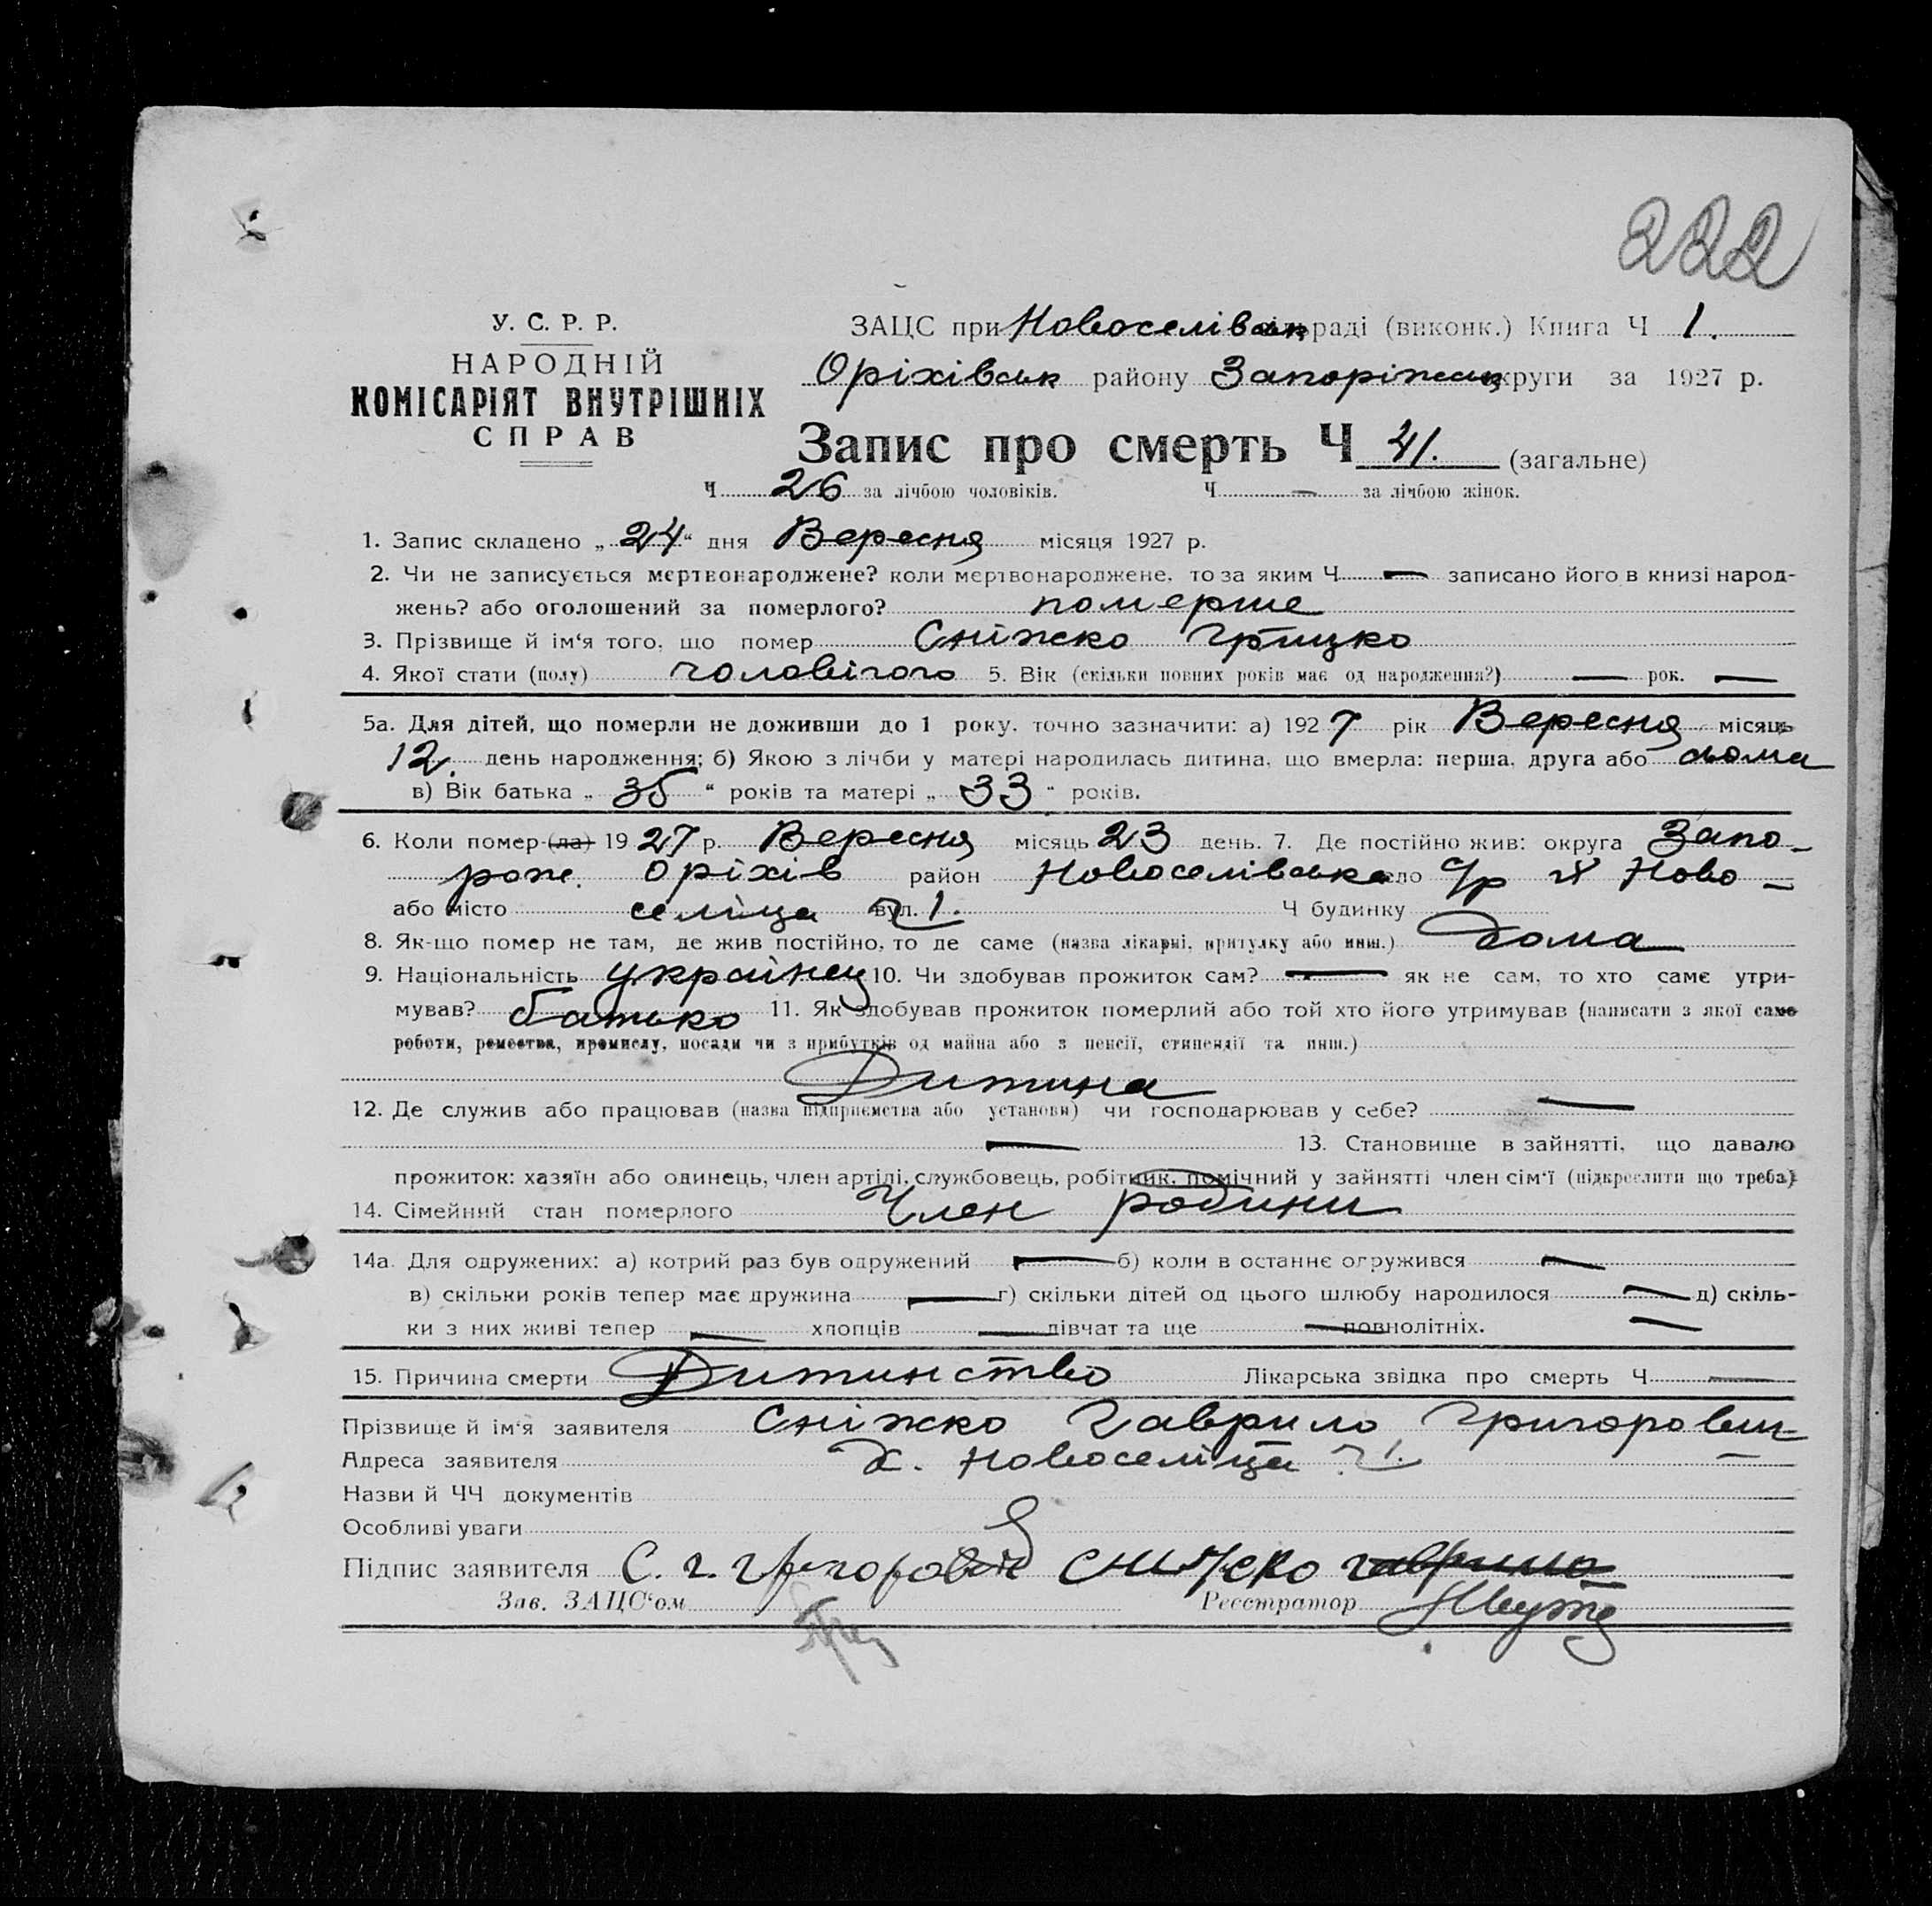 222
У. С. Р. Р.
НАРОДНІЙ
КОМІСАРІЯТ ВНУТРІШНІХ
СПРАВ
ЗАЦС при Новоселівськ раді (виконк.) Книга Ч 1.
Оріхівськ району Запоріжськ округи за 1927 р.
Запис про смерть Ч 41. (загальне)
Ч 26 за лічбою чоловіків. Ч — за лічбою жінок.
1. Запис складено „ 24 “ дня Вересня місяця 1927 р.
2. Чи не записується мертвонароджене? коли мертвонароджене, то за яким Ч — записано його в книзі народ-
жень? або оголошений за померлого? померше
3. Прізвище й ім‘я того, що помер Сніжко Грицко
4. Якої стати (полу) чоловічого 5. Вік (скільки повних років має од народження?) — рок. —
5а. Для дітей, що померли не доживши до 1 року, точно зазначити: а) 1927 рік Вересня місяць
12. день народження; б) Якою з лічби у матері народилась дитина, що вмерла: перша, друга або сьома
в) Вік батька „ 35 “ років та матері „ 33 “ років.
6. Коли помер (ла) 1927 р. Вересня місяць 23 день. 7. Де постійно жив: округа Запо-
рож. Оріхів район Новоселівська село С/р х Ново-
або місто селіца вул. ч 1. Ч будинку
8. Як-що помер не там, де жив постійно, то де саме (назва лікарні, притулку або инш.) Дома
9. Національність українец 10. Чи здобував прожиток сам? — як не сам, то хто саме утри-
мував? батько 11. Як здобував прожиток померлий або той хто його утримував (написати з якої само
роботи, ремества, промислу, посади чи з прибутків од майна або з пенсії, стипендії та инш.)
Дитина
12. Де служив або працював (назва підприємства або установи) чи господарював у себе? —
— 13. Становище в зайнятті, що давало
прожиток: хазяїн або одинець, член артілі, службовець, робітник, помічний у зайнятті член сім‘ї (підкреслити що треба)
14. Сімейний стан померлого Член родини
14а. Для одружених: а) котрий раз був одружений — б) коли в останнє одружився —
в) скільки років тепер має дружина — г) скільки дітей од цього шлюбу народилося — д) скіль-
ки з них живі тепер — хлопців — дівчат та ще — повнолітніх. —
15. Причина смерти Дитинство Лікарська звідка про смерть Ч —
Прізвище й ім‘я заявителя Сніжко Гаврило Григорович
Адреса заявителя х. Новоселіца ч 1.
Назви й ЧЧ документів
Особливі уваги
Підпис заявителя С. г. Сніжко гаврило
Зав. ЗАЦС‘ом Реєстратор